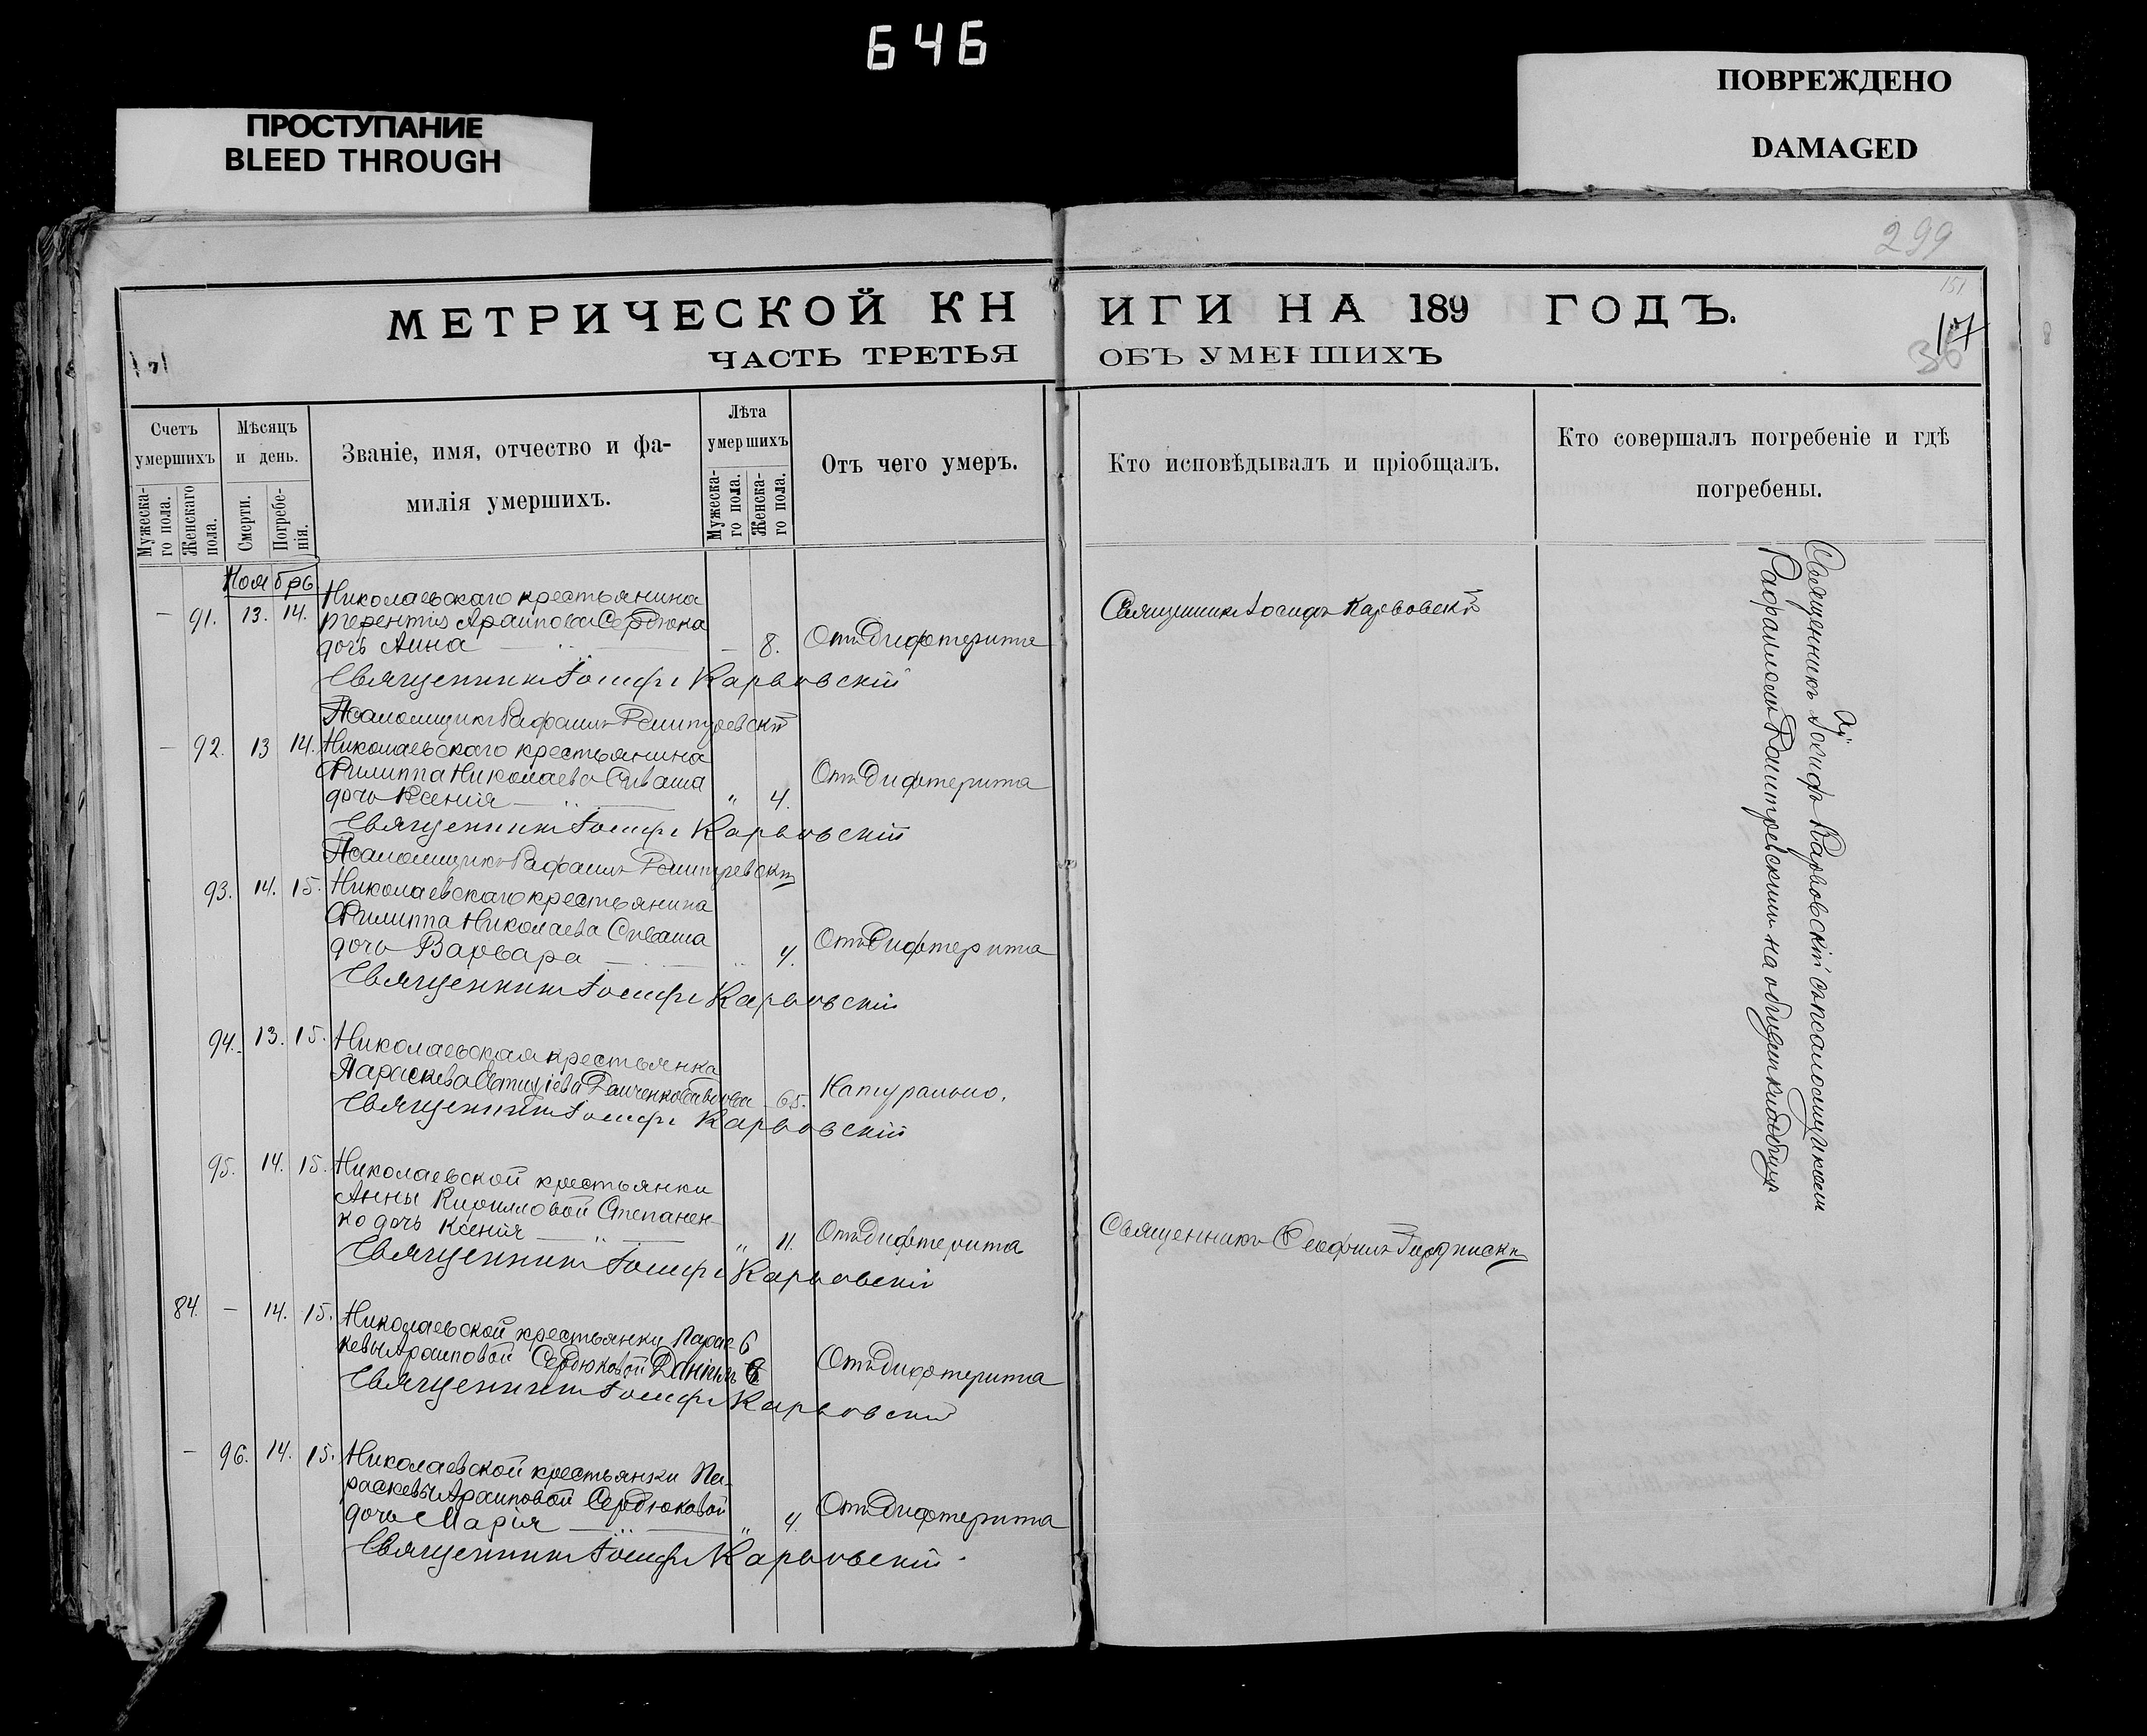 646
ПРОСТУПАНИЕ
BLEED THROUGH
ПОВРЕЖДЕНО
DAMAGED
299
151
МЕТРИЧЕСКОЙ КНИГИ НА 189 ГОДЪ.
ЧАСТЬ ТРЕТЬЯ ОБЪ УМЕРШИХЪ
Счетъ умершихъ
Мужеска-го пола.
Женскаго пола.
Мѣсяцъ и день.
Смерти.
Погребе-нія.
Званіе, имя, отчество и фа-
милія умершихъ.
Лѣта умершихъ
Мужеска-го пола.
Женска-го пола.
Отъ чего умеръ.
Кто исповѣдывалъ и пріобщалъ.
Кто совершалъ погребеніе и гдѣ
погребены.
Ноябрь.
Николаевскаго крестьянина
– 91. 13. 14. Терентія Архипова Сердюка
дочь Анна – 8. Отъ Дифтерита
Священникъ Іосифъ Карвовскій
Священникъ Іосифъ Карвовскій
Псаломщикъ Рафаилъ Дмитревскій
– 92. 13 14. Николаевскаго крестьянина
Филиппа Николаева Сиваша
дочь Ксенія „ 4. Отъ Дифтерита
Священникъ Іосифъ Карвовскій
Псаломщикъ Рафаилъ Дмитревскій
93. 14. 15. Николаевскаго крестьянина
Филиппа Николаева Сиваша
дочь Варвара „ 4. Отъ Дифтерита
Священникъ Іосифъ Карвовскій
94. 13. 15. Николаевская крестьянка
Параскева 65. Натурально.
Священникъ Іосифъ Карвовскій
95. 14. 15. Николаевской крестьянки
Анны Кирилловой Степанен-
ко дочь Ксенія „ 11. Отъ Дифтерита
Священникъ Іосифъ Карвовскій
Священникъ Ѳеофилъ
84. – 14. 15. Николаевской крестьянки Парас-
кевы Архиповой Сердюковой Даніилъ 6 Отъ Дифтерита
Священникъ Іосифъ Карвовскій
– 96. 14. 15. Николаевской крестьянки Па-
раскевы Архиповой Сердюковой
дочь Марія „ 4. Отъ Дифтерита
Священникъ Іосифъ Карвовскій
Священникъ Іосифъ Карвовскій съ псаломщикомъ
Рафаиломъ Дмитревскимъ на общем кладбищѣ